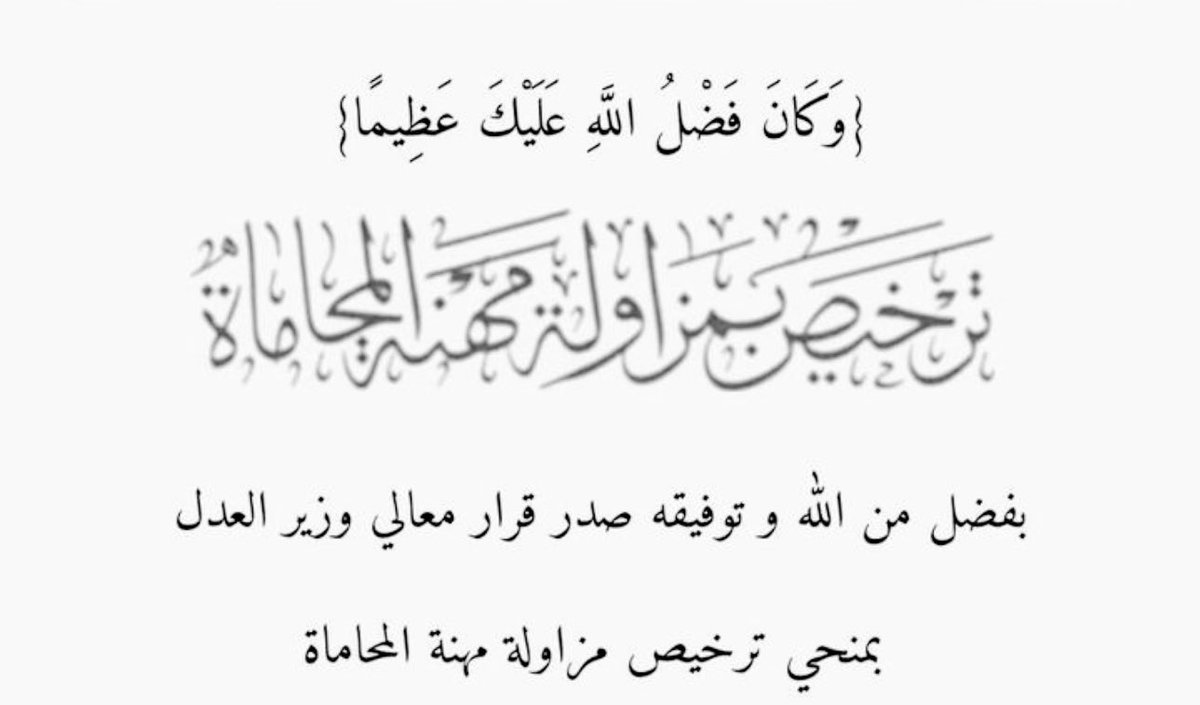 {وَكَانَ فَضْلُ اللَّهِ عَلَيْكَ عَظِيمًا}
ترخيص بمزاولة مهنة المحاماة
بفضل من الله و توفيقه صدر قرار معالي وزير العدل
بمنحي ترخيص مزاولة مهنة المحاماة